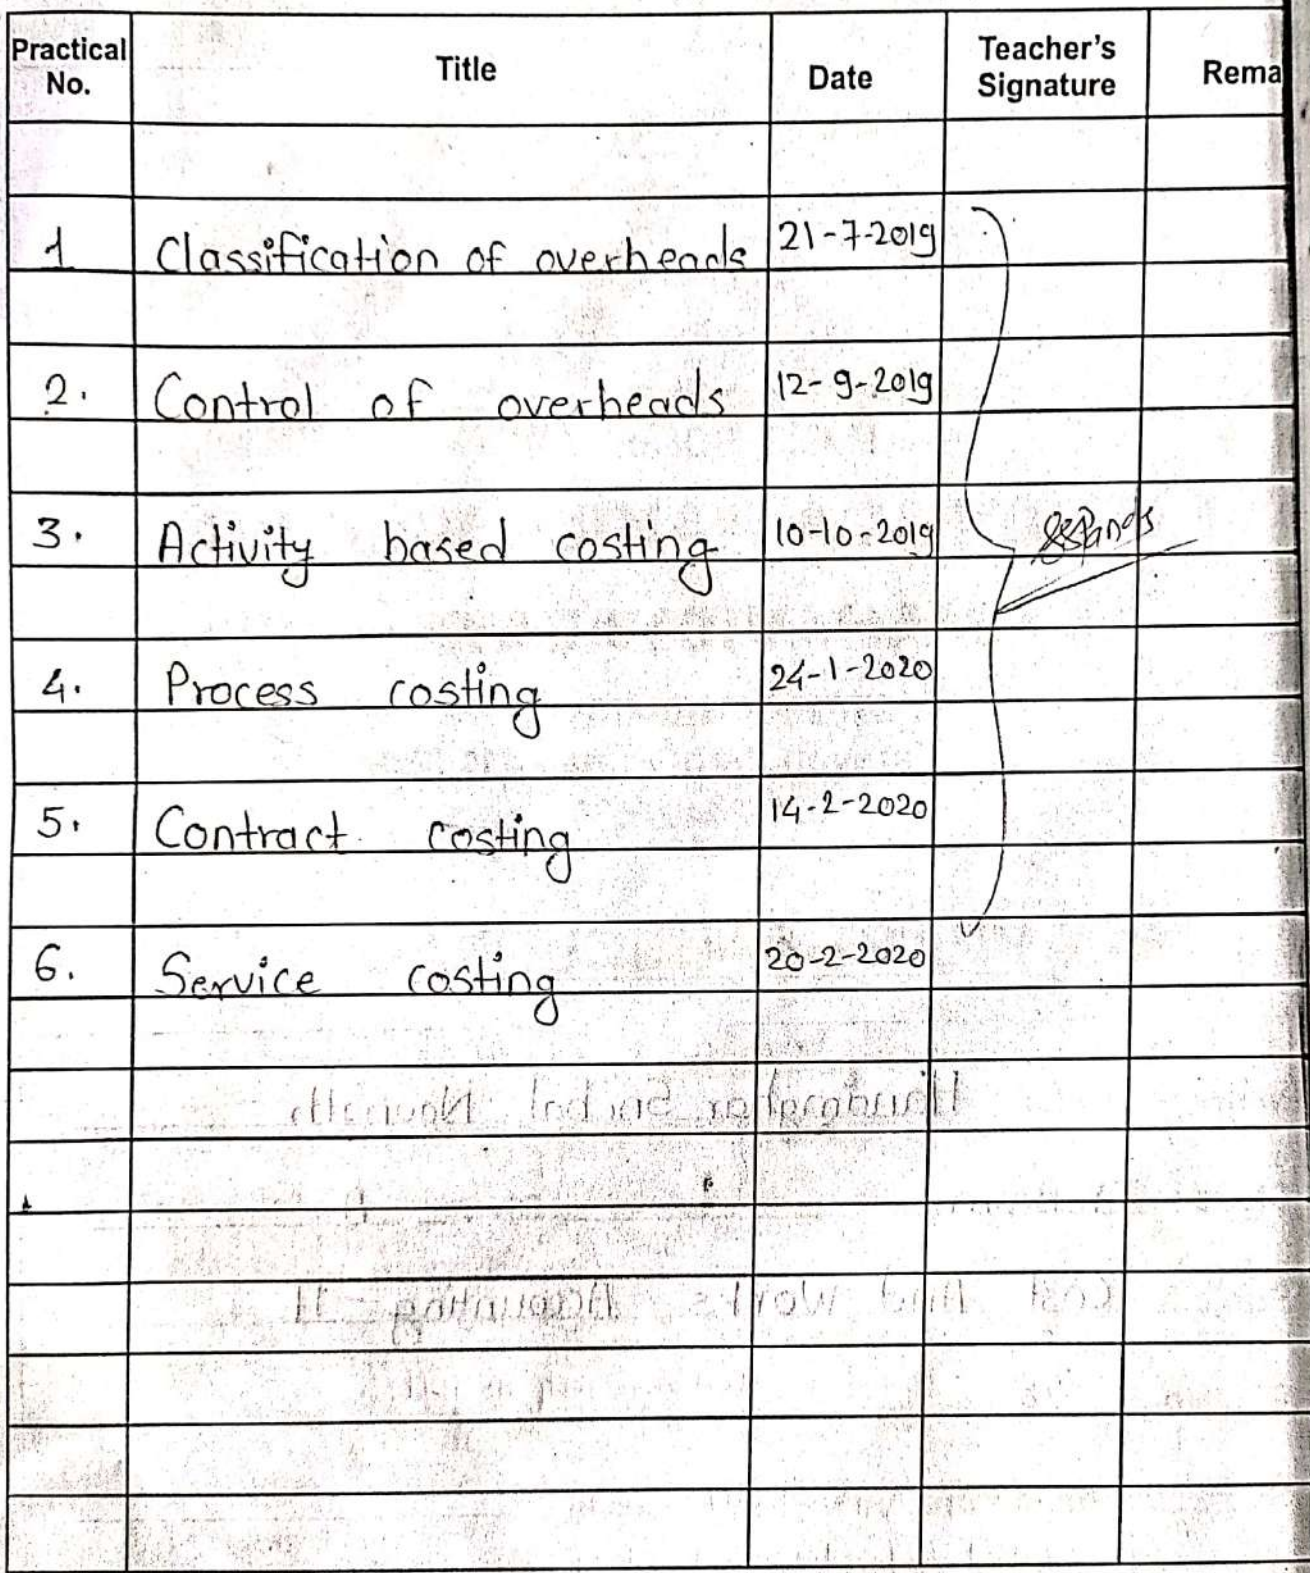 Practical No. Title Date Teacher's Signature Rema
1 Classification of overheads 21-7-2019
2. Control of overheads 12-9-2019
3. Activity based costing 10-10-2019
4. Process costing 24-1-2020
5. Contract costing 14-2-2020
6. Service costing 20-2-2020